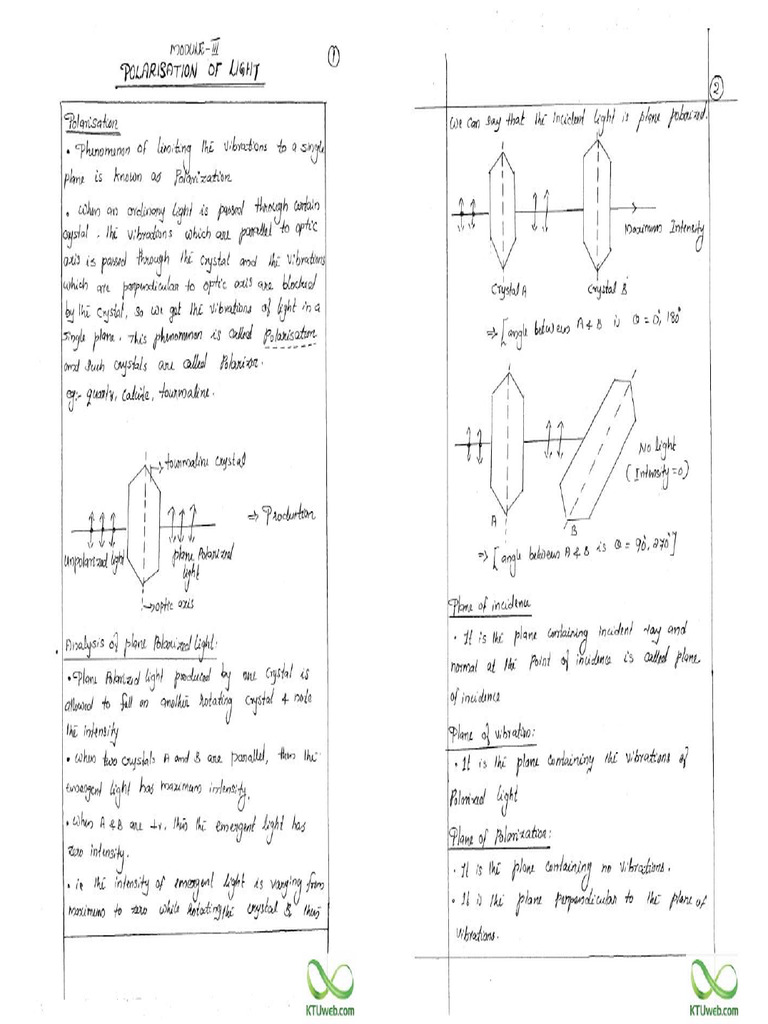 MODULE-III
POLARISATION OF LIGHT
1
Polarisation
• Phenomenon of limiting the vibrations to a single
plane is known as Polarization
• When an ordinary light is passed through certain
crystal. The vibrations which are parallel to optic
axis is passed through the crystal and the vibrations
which are perpendicular to optic axis are blocked
by the crystal, so we get the vibrations of light in a
single plane. This phenomenon is called Polarisation
and such crystals are called Polarizor.
eg:- quartz, calcite, tourmaline.
→tourmaline crystal
⇒ Production
unpolarized light
plane Polarized
light
→optic axis
Analysis of plane Polarized light:
• Plane Polarized light produced by one crystal is
allowed to fall on another rotating crystal & note
the intensity
• When two crystals A and B are parallel, then the
emergent light has maximum intensity.
• When A & B are ⊥r, then the emergent light has
zero intensity.
• ie the intensity of emergent light is varying from
maximum to zero while rotating the crystal B then
KTUweb.com
2
We can say that the incident light is plane polarized.
Maximum Intensity
Crystal A
Crystal B
⇒ [angle between A & B is θ = 0°, 180°
No light
(Intensity=0)
A
B
⇒ [angle between A & B is θ = 90°, 270°]
Plane of incidence
• It is the plane containing incident ray and
normal at the point of incidence is called plane
of incidence
Plane of vibration:
• It is the plane containing the vibrations of
Polarized light
Plane of Polarization:
• It is the plane containing no vibrations.
• It is the plane perpendicular to the plane of
vibrations.
KTUweb.com